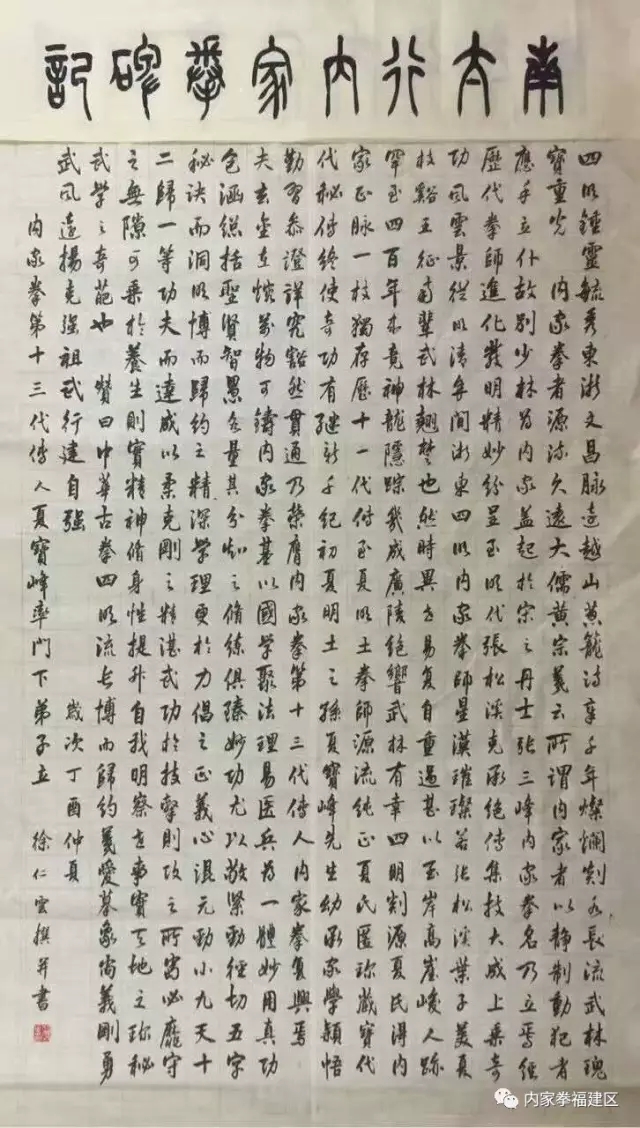 南太行内家拳碑記
四明鍾靈毓秀東浙文昌脉遠越山黄龍詩享千年燦爛剡水長流武林瑰
寶重光 内家拳者源流久遠大儒黄宗羲云所謂内家者以静制動犯者
應手立仆故别少林为内家盖起於宋之丹士張三峰内家拳名乃立焉經
歷代拳師進化發明精妙紛呈至明代張松溪克承绝傳集技大成上乘奇
功風雲景從明清年間浙東四明内家拳師星漢璀璨若張松溪葉子美夏
枝谿王征南輩武林翹楚也然時異世易复自重過甚以至岸高崖峻人跡
罕至四百年来竟神龍隱踪幾成廣陵绝響武林有幸四明剡源夏氏得内
家正脉一枝獨存歷十一代傳至夏明土拳師源流纯正夏氏匿珍藏寶代
代秘傳终使奇功有继新千纪初夏明土之孫夏寶峰先生幼承家學穎悟
勤習参證詳究豁然貫通乃榮膺内家拳第十三代傳人内家拳复興焉
夫玄金在熔萬物可鑄内家拳基以國學聚法理易医兵为一體妙用真功
包涵综括聖賢智愚各量其分知之脩練俱臻妙功尤以敬緊勁徑切五字
秘诀而洞明博而歸约之精深學理更於力倡之正義心混元勁小九天十
二歸一等功夫而達成以柔克剛之精湛武功於技擊則攻之所必靡守
之無隙可乘於養生則實精神脩身性提升自我明察世事實天地之珍秘
武學之奇葩也 贊曰中華古拳四明流长博而歸约愛慕尚義剛勇
武風遠揚克强祖武行建自强 歲次丁酉仲夏
内家拳第十三代傳人夏寶峰率門下弟子立 徐仁雲撰并書
内家拳福建区